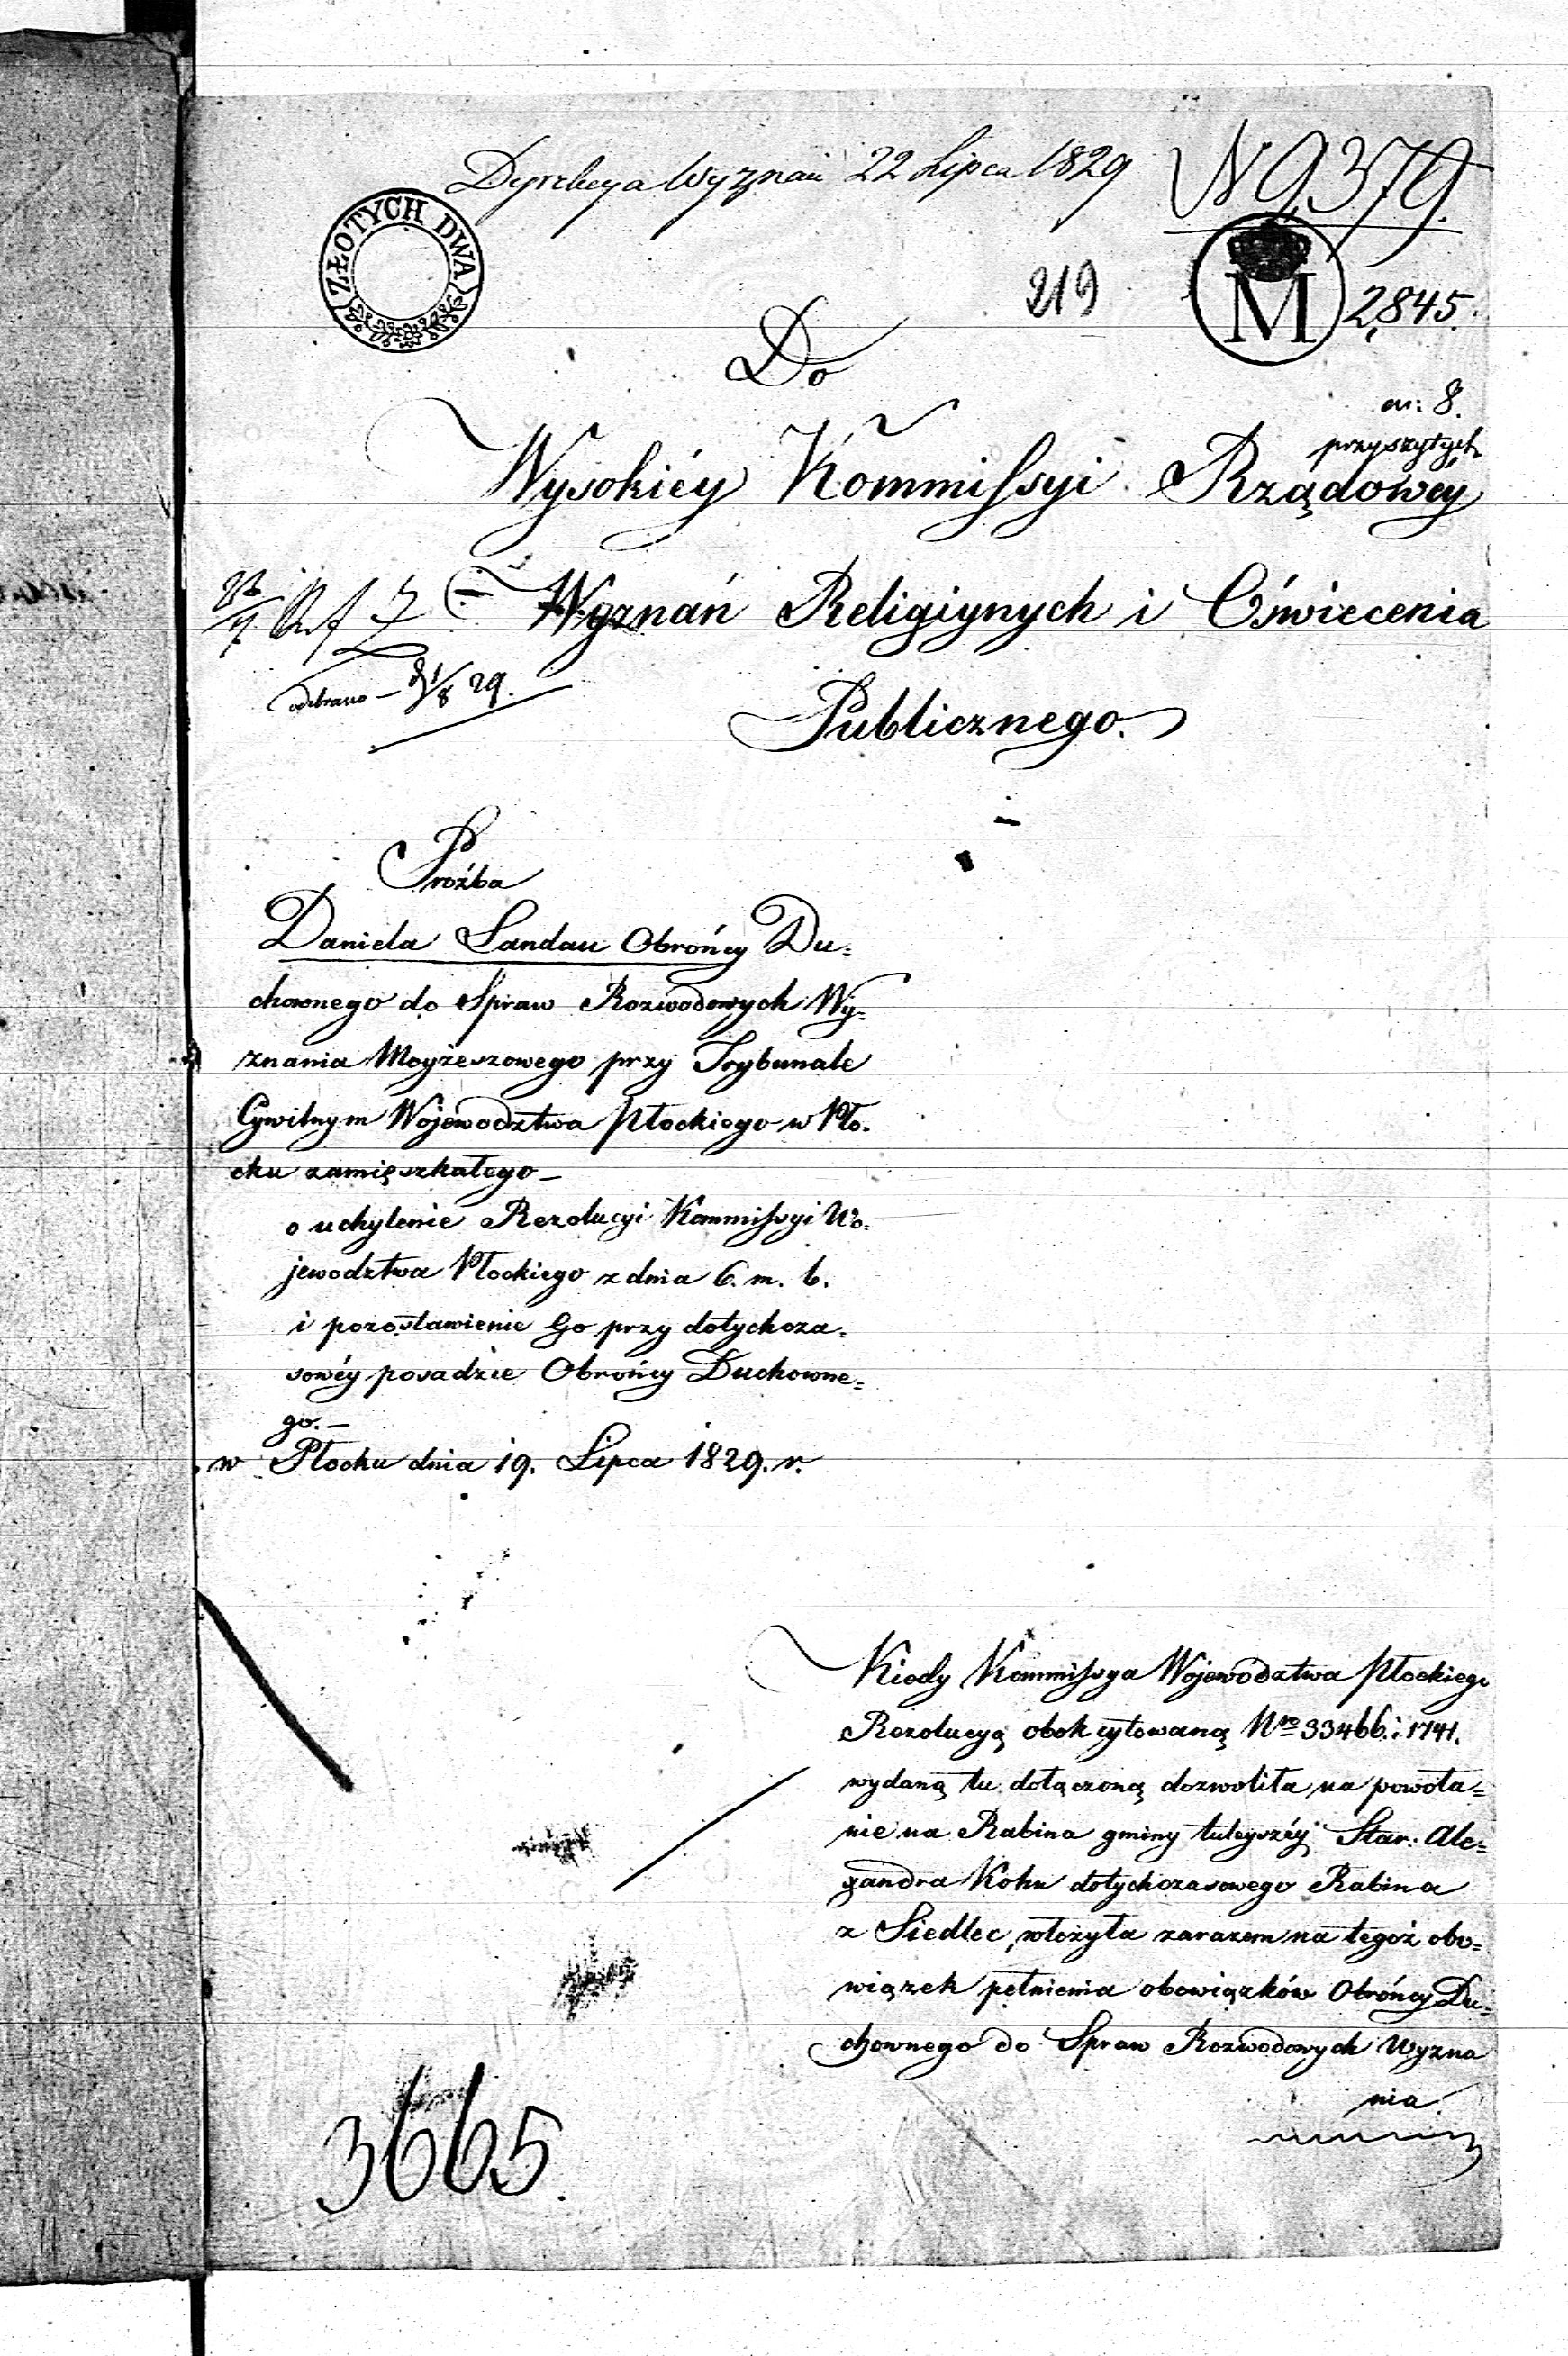 Dyrekcya Wyznań 22 Lipca 1829
N 9,379.
ZŁOTYCH DWA
219
M
2,845.
Do
an: 8.
przyszytych
Wysokiéy Kommissyi Rządowéy
Wyznań Religiynych i Oświecenia
odebrano – 31/8 29.
Publicznego.
Proźba
Daniela Landau Obrońcy Du=
chownego do Spraw Rozwodowych Wy=
znania Moyżeszowego przy Trybunale
Cywilnym Województwa Płockiego w Pło=
cku zamięszkałego –
o uchylenie Rezolucyi Kommissyi Wo=
jewodztwa Płockiego z dnia 6. m. b.
i pozostawienie Go przy dotychcza=
sowéy posadzie Obrońcy Duchowne=
go. –
w Płocku dnia 19. Lipca 1829. r.
Kiedy Kommissya Województwa Płockiego
Rezolucyą obok cytowaną Nro 33466. i 1741.
wydaną tu dołączoną dozwoliła na powoła=
nie na Rabina gminy tuteyszéy Star. Ale=
xandra Kohn dotychczasowego Rabina
z Siedlec, włożyła zarazem na tegoż obo=
wiązek pełnienia obowiązków Obrońcy Du=
chownego do Spraw Rozwodowych Wyzna
nia.
3665.